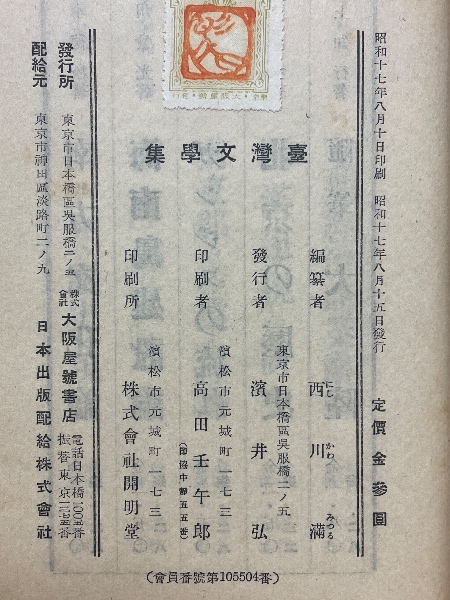 昭和十七年八月十日印刷 昭和十七年八月十五日發行
定價金參圓
臺灣文學集
編纂者 西川滿
にし かわ みつる
東京市日本橋區吳服橋二ノ五
發行者 濱井弘
濱松市元城町一七三
印刷者 高田壬午郎
(印協中靜五五番)
濱松市元城町一七三
印刷所 株式會社開明堂
發行所 東京市日本橋區吳服橋二ノ五 株式會社 大阪屋號書店
電話日本橋
振替東京
配給元 東京市神田區淡路町二ノ九 日本出版配給株式會社
(會員番號第105504番)